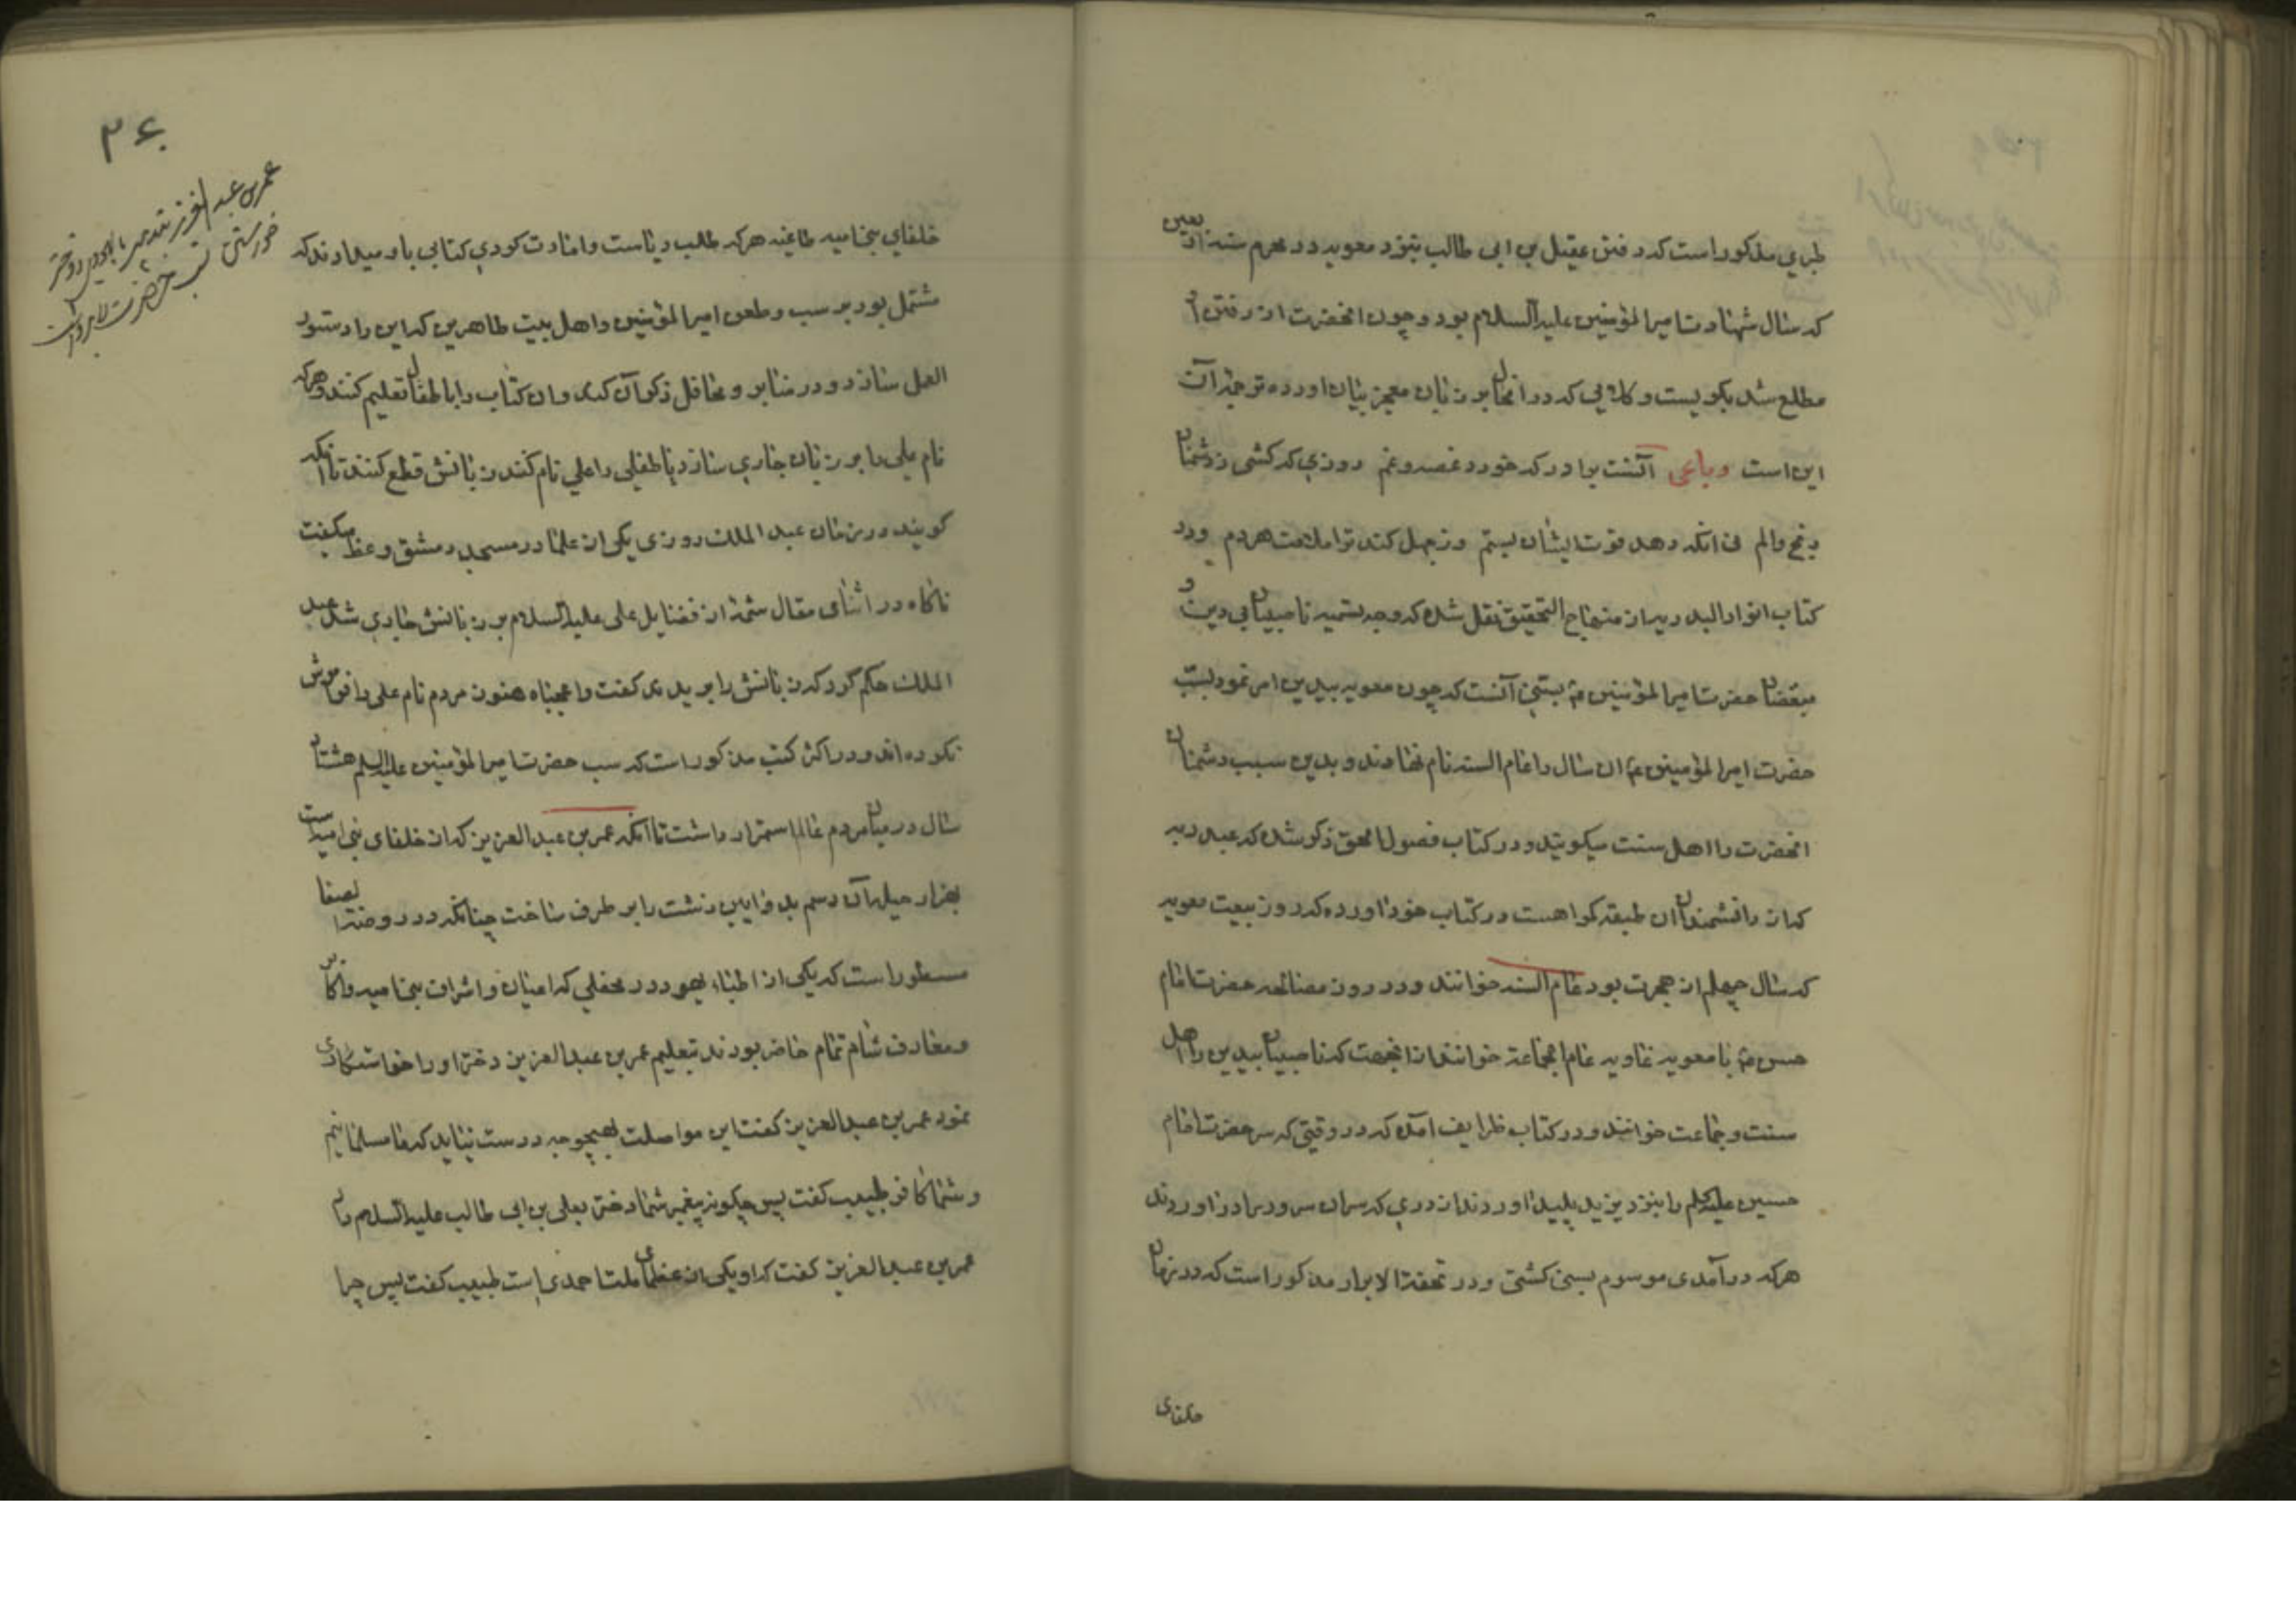 طبری مذکور است که رفتن عقیل بن ابی طالب بنزد معویه در محرم سنه اربعین
که سال شهادت امیرالمؤمنین علیه السلام بود و چون انحضرت از رفتن او
مطلع شد بگریست و کلامی که در انحال بر زبان معجز بیان اورده ترجمه آن
این است رباعی آنست برادر که خورد غصه و غم روزی که کشی ز دشمنان
رنج و الم نی انکه دهد قوت ایشان بستم وز جهل کند ترا ملامت هر دم و در
کتاب انوار البدریه از منهاج التحقیق نقل شده که وجه تسمیه ناصبیان بی دین و
مبغضان حضرت امیرالمؤمنین ع بسنی آنست که چون معویه بیدین امر نمود بسب
حضرت امیرالمؤمنین ع ان سال را عام السنه نام نهادند و بدین سبب دشمنان
انحضرت را اهل سنت میکویند و در کتاب فصول الحق ذکر شده که عبد ربه
که از دانشمندان ان طبقه کمراهست در کتاب خود اورده که روز بیعت معویه
که سال چهلم از هجرت بود عام السنه خوانند و در روز مصالحه حضرت امام
حسن ع با معویه غاویه عام الجماعة خوانند از انجهت که ناصبیان بیدین را اهل
سنت و جماعت خوانند و در کتاب ظرایف امده که در وقتی که سر حضرت امام
حسین علیه السلم را بنزد یزید پلید اوردند از دری که سران سرور را در اوردند
هر که در آمدی موسوم بسنی کشتی و در تحفة الابرار مذکور است که در زمان
خلفای
۲۶۰
عمر بن عبد العزیز بتدبیر یهودی دختر
خواستن سب حضرت را برداشت
خلفای بنی امیه طاغیه هر که طلب ریاست و امارت کردی کتابی باو میدادند که
مشتمل بود بر سب و طعن امیرالمؤمنین و اهل بیت طاهرین که این را دستور
العمل سازد و در منابر و محافل ذکر آن کند و ان کتاب را باطفال تعلیم کنند و هر که
نام علی را بر زبان جاری سازد یا طفلی را علی نام کنند زبانش قطع کنند تا انکه
کویند در زمان عبد الملک روزی یکی از علما در مسجد دمشق وعظ میکفت
ناکاه در اثنای مقال شمه از فضایل علی علیه السلام بر زبانش جاری شد عبد
الملک حکم کرد که زبانش را بریدند کفت واعجباه هنوز مردم نام علی را فراموش
نکرده اند و در اکثر کتب مذکور است که سب حضرت امیرالمؤمنین علیه السلم هشتاد
سال در میان مردم عالم استمرار داشت تا آنکه عمر بن عبد العزیز که از خلفای بنی امیه است
بهزار حیله آن رسم بد و ایین زشت را بر طرف ساخت چنانکه در روضة الصفا
مسطور است که یکی از اطباء یهود در محفلی که اعیان و اشراف بنی امیه و اکابر
و معارف شام تمام حاضر بودند بتعلیم عمر بن عبد العزیز دختر او را خواستکاری
نمود عمر بن عبد العزیز کفت این مواصلت بهیچوجه درست نیاید که ما مسلمانیم
و شما کافر طبیب کفت پس چکونه پیغمبر شما دختر بعلی بن ابی طالب علیه السلام داد
عمر بن عبد العزیز کفت که او یکی از عظمای ملت احمدی است طبیب کفت پس چرا